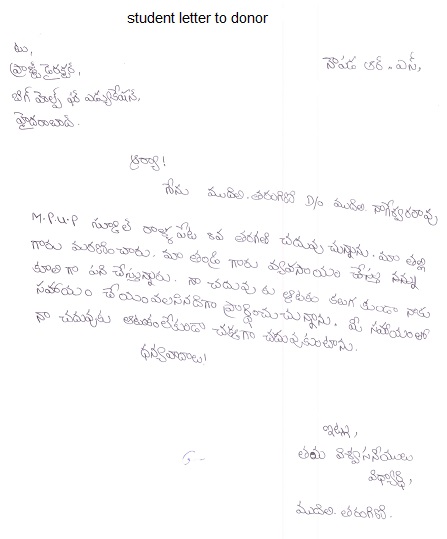 student letter to donor
టు,
ప్రాజెక్ట్ డైరెక్టర్,
బిగ్ హెల్ప్ ఫర్ ఎడ్యుకేషన్,
హైదరాబాద్.
నౌపడ ఆర్.ఎస్,
ఆర్యా!
నేను ముదిలి. తరంగిణి D/o ముదిలి. నాగేశ్వరరావు
M.P.U.P స్కూల్ లో 8వ తరగతి చదువు చున్నాను. మా తల్లి
గారు మరణించారు. మా తండ్రి గారు వ్యవసాయం చేస్తూ నన్ను
కూలి గా పని చేస్తున్నారు. నా చదువు కు ఆటంకం కలుగ కుండా నాకు
సహాయం చేయవలసినదిగా ప్రార్థించుచున్నాను. మీ సహాయంతో
నా చదువుకు ఆటంకంలేకుండా చక్కగా చదువుకుంటాను.
ధన్యవాదాలు!
ఇట్లు,
తమ విశ్వసనీయులు
విద్యార్థి,
ముదిలి. తరంగిణి.